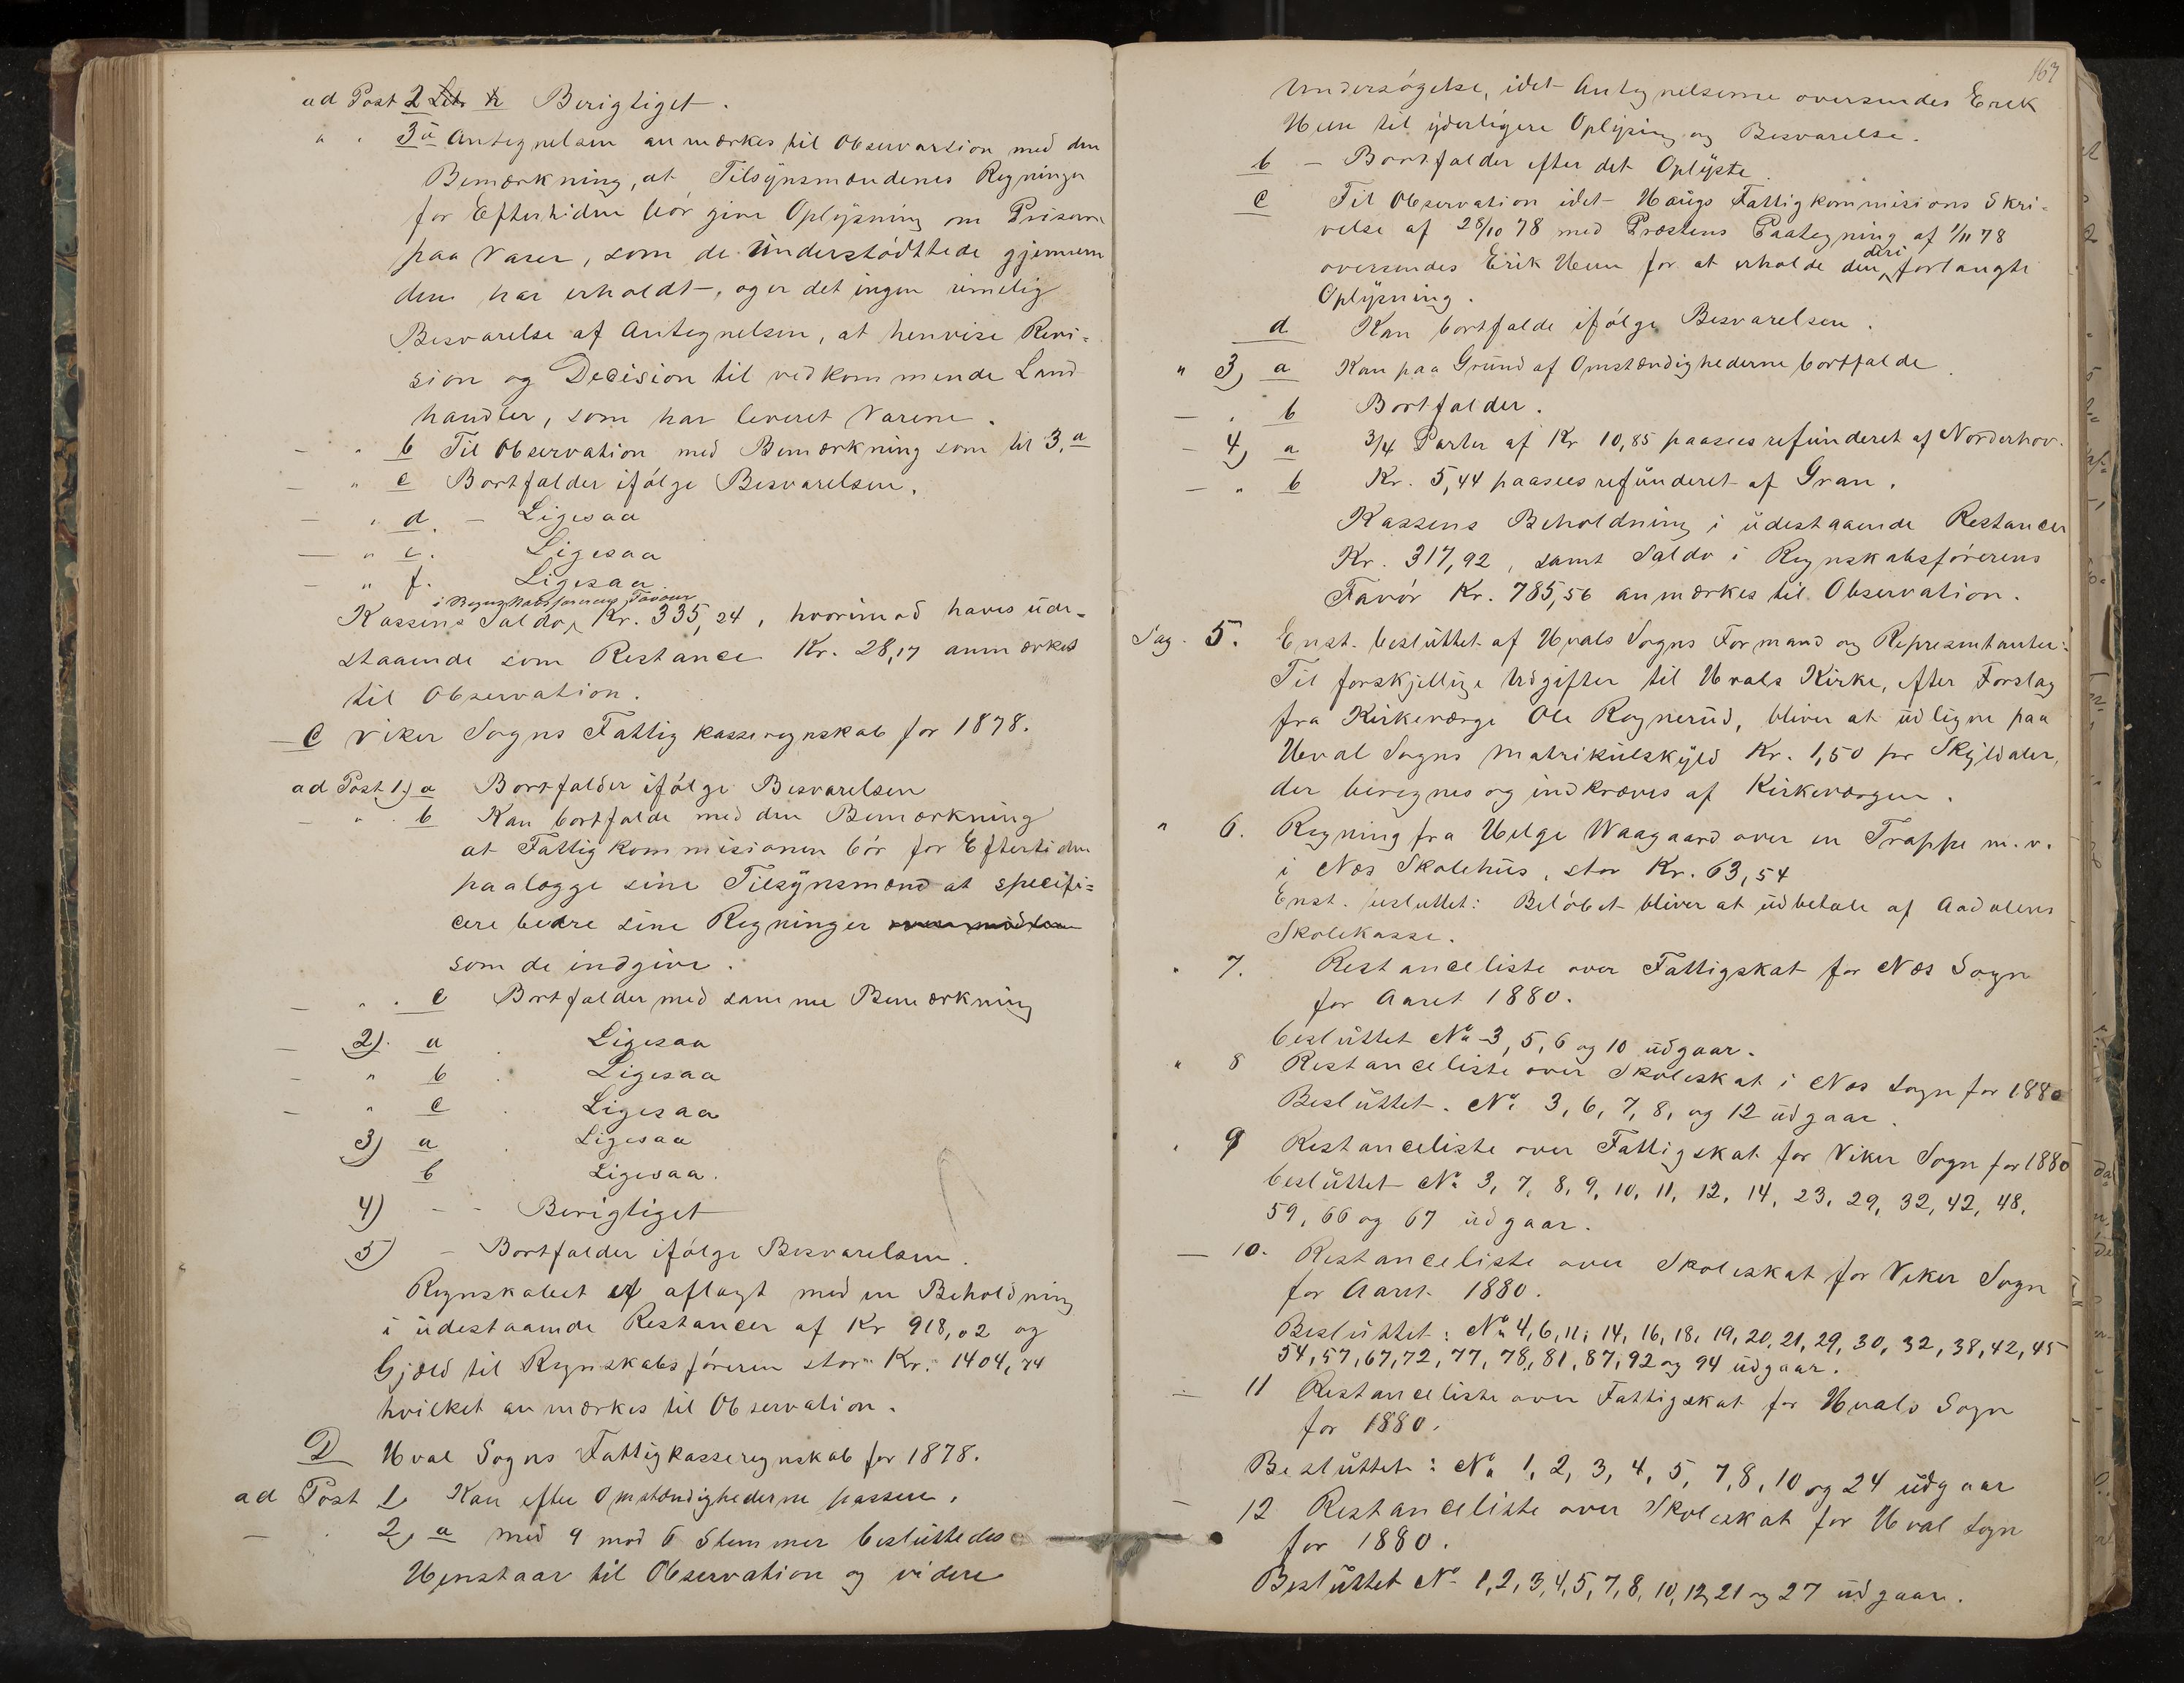 ad Post 2 Litr Berigtiget.
" " 3 a Antegnelsen anmærkes til Observartion med den
Bemærkning, at Tilsynsmændenes Regninger
for Eftertiden bør give Oplysning om Priserne
paa Varer, som de Understødttede gjennem
dem har erholdt, og er det ingen rimelig
Besvarelse af Antegnelsen, at henvise Revi=
sion og Decision til vedkommende Land
handler, som har leveret Varene.
— " b Til Observation med Bemærkning som til 3. a
— " c Bortfalder ifølge Besvarelsen.
— " d. — Ligesaa
— " e. Ligesaa
— " f. Ligesaa
i Regnskabsførerens Favour
Kassens Saldo Kr. 335,24, hvorimod haves ude=
staaende som Restance Kr. 28,17 anmærkes
til Observation.
— C Viker Sogns Fattigkasseregnskab for 1878.
ad Post 1.) a Bortfalder ifølge Besvarelsen
— " . b Kan bortfalde med den Bemærkning
at Fattigkommisionen bør for Eftertiden
paalægge sine Tilsynsmænd at specifi=
cere bedre sine Regninger
som de indgive.
— " . c Bortfalder med samme Bemærkning
— 2). a . Ligesaa
— " b . Ligesaa
— " c . Ligesaa
3) a . Ligesaa
b Ligesaa.
4) - - Berigtiget
5) - Bortfalder ifølge Besvarelsen.
Regnskabet er aflagt med en Beholdning
i udestaaende Restancer af Kr 918,02 og
Gjæld til Regnskabsføreren stor Kr. 1404,74
hvilket anmærkes til Observation.
D Hval Sogns Fattigkasseregnskab for 1878.
ad Post 1. Kan efter Omstændighederne passere.
— . 2, a med 9 mod 6 Stemmer besluttedes
Henstaar til Observation og videre
163
Undersøgelse, idet Antegnelserne oversendes Erik
Heen til yderligere Oplysing og Besvarelse.
b - Bortfalder efter det Oplyste.
c Til Observation idet Haugs Fattigkommisions Skri=
velse af 28/10 78 med Prostens Paategning af 1/11 78
deri
oversendes Erik Heen for at erholde den forlangte
Oplysning.
d Kan bortfalde ifølge Besvarelsen.
" 3, a Kan paa Grund af Omstændighederne bortfalde.
— . b Bortfalder.
— 4, a 3/4 Parter af Kr 10,85 paasees refunderet af Norderhov.
— " b Kr. 5,44 paasees refunderet af Gran.
Kassens Beholdning i udestaaende Restancer
Kr. 317,92, samt Saldo i Regnskabsførerens
Favør Kr. 785,56 anmærkes til Observation.
Sag. 5. Enst. besluttet af Hvals Sogns Formand og Representanter:
Til forskjellige Udgifter til Hvals Kirke, efter Forslag
fra Kirkeværge Ole Rognerud, bliver at udligne paa
Hval Sogns Matrikulskyld Kr. 1,50 pr Skylddaler,
der beregnes og indkræves af Kirkeværgen.
" 6. Regning fra Helge Waagaard over en Trappe m.v.
i Næs Skolehus, stor Kr. 63,54
Enst. besluttet: Beløbet bliver at udbetale af Aadalens
Skolekasse.
" 7. Restanceliste over Fattigskat for Næs Sogn
for Aaret 1880.
besluttet No 3, 5, 6 og 10 udgaar.
" 8 Restanceliste over Skoleskat i Næs Sogn for 1880
Besluttet. No 3, 6, 7, 8, og 12 udgaar.
" 9 Restanceliste over Fattigskat for Viker Sogn for 1880
besluttet No 3, 7, 8, 9, 10, 11, 12, 14, 23, 29, 32, 42, 48,
59, 66 og 67 udgaar.
— 10. Restanceliste over Skoleskat for Viker Sogn
for Aaret 1880.
Besluttet: No 4, 6, 11, 14, 16, 18, 19, 20, 21, 29, 30, 32, 38, 42, 45
54, 57, 67, 72, 77, 78, 81, 87, 92 og 94 udgaar.
— 11 Restanceliste over Fattigskat for Hvals Sogn
for 1880.
Besluttet: No 1, 2, 3, 4, 5, 7, 8, 10 og 24 udgaar
— 12 Restanceliste over Skoleskat for Hval Sogn
for 1880.
Besluttet No 1, 2, 3, 4, 5, 7, 8, 10, 12, 21 og 27 udgaar.